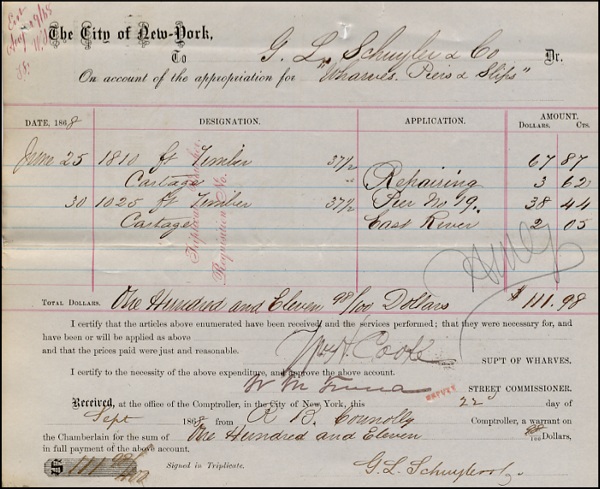 The City of New-York,
To G. L. Schuyler & Co Dr.
On account of the appropriation for "Wharves. Piers & Slips"
DATE, 1868 DESIGNATION. APPLICATION. AMOUNT.
DOLLARS. CTS.
June 25 1810 ft Timber 37½ 67 87
Cartage " Repairing 3 62
30 1025 ft Timber 37½ Pier No 19. 38 44
Cartage East River 2 05
Requisition No.
TOTAL DOLLARS. One Hundred and Eleven 98/100 Dollars $ 111.98
I certify that the articles above enumerated have been received, and the services performed; that they were necessary for, and
have been or will be applied as above
and that the prices paid were just and reasonable.
SUP'T OF WHARVES.
I certify to the necessity of the above expenditure, and approve the above account.
STREET COMMISSIONER.
DEPUTY
Received, at the office of the Comptroller, in the City of New York, this 22 day of
Sept 1868 from R. B. Connolly Comptroller, a warrant on
the Chamberlain for the sum of One Hundred and Eleven 98/100 Dollars,
in full payment of the above account.
$ 111 98/100 Signed in Triplicate. G. L. Schuyler & Co